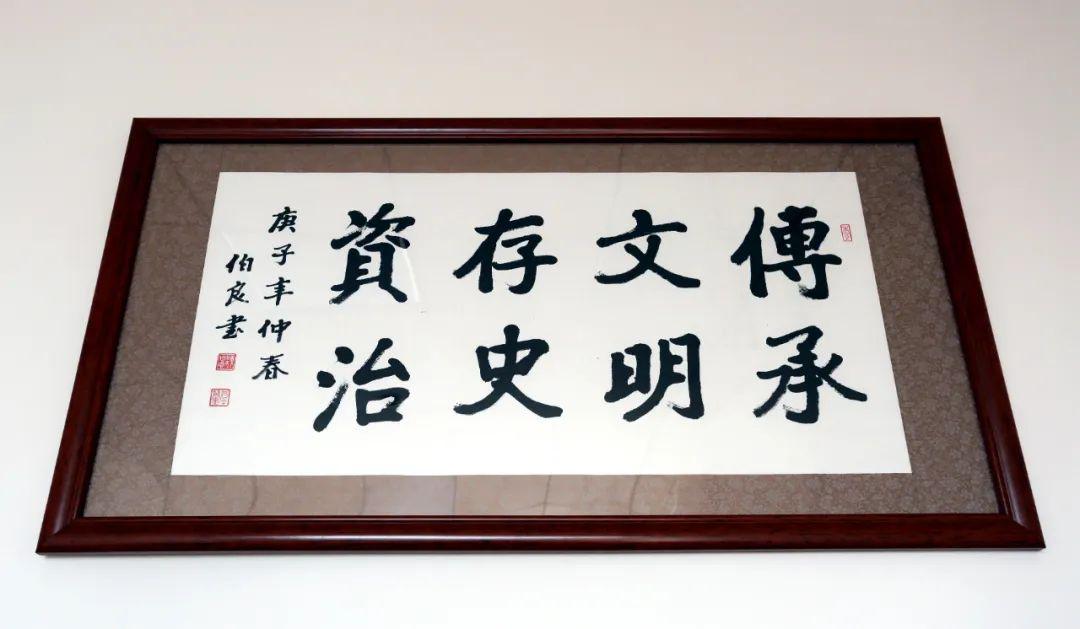 傳承
文明
存史
資治
庚子年仲春
伯良書